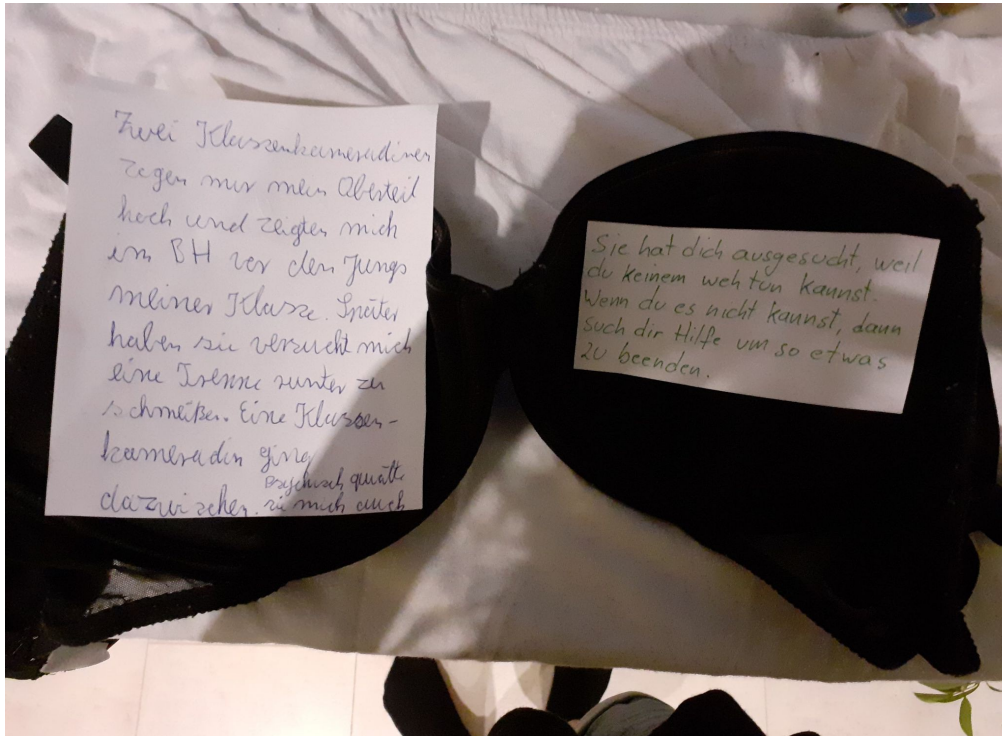 Zwei Klassenkameradinen
zogen mir mein Oberteil
hoch und zeigten mich
im BH vor den Jungs
meiner Klasse. Später
haben sie versucht mich
eine Trenne runter zu
schmeißen. Eine Klassen-
kameradin ging
dazwischen. psychisch quälte
sie mich auch
Sie hat dich ausgesucht, weil
du keinem weh tun kannst.
Wenn du es nicht kannst, dann
such dir Hilfe um so etwas
zu beenden.